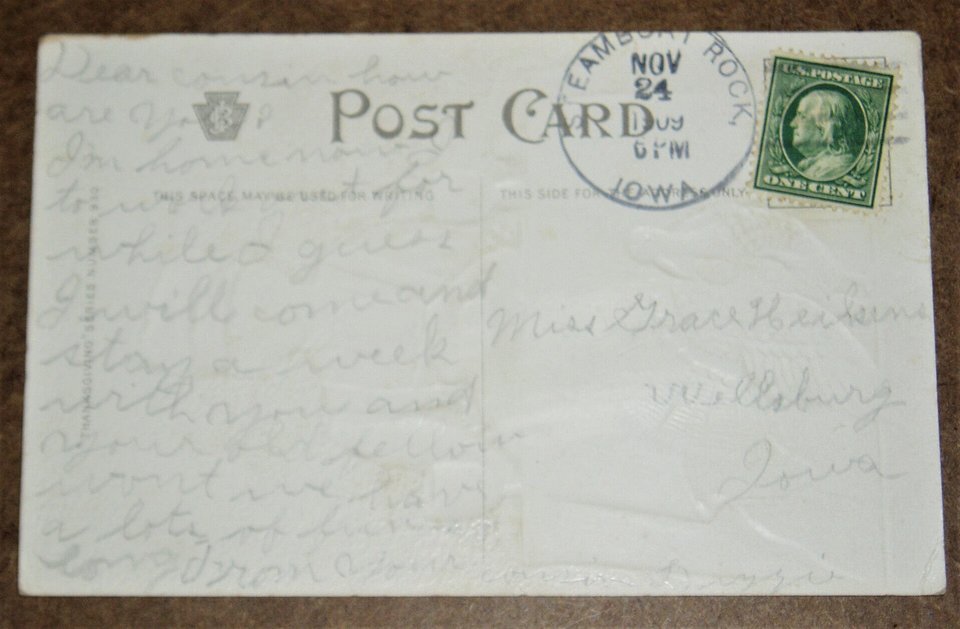 Dear cousin how
are you?
I'm home now
to work yet for
while I guess
I will come and
stay a week
with you and
your old fellow
wont we have
a lots of fun
from your cousin
POST CARD
THIS SPACE MAY BE USED FOR WRITING
THIS SIDE FOR THE ADDRESS ONLY
THANKSGIVING SERIES NUMBER
STEAMBOAT ROCK,
NOV
24
1909
6 PM
IOWA
U.S. POSTAGE
ONE CENT
Miss Grace
Wellsburg
Iowa